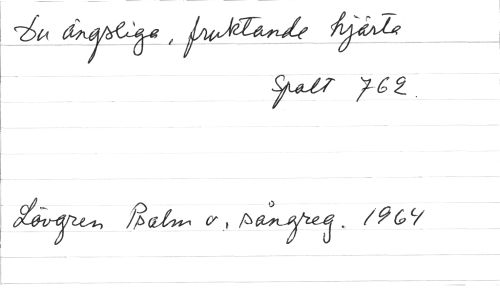 Du ängsliga, fruktande hjärta
Spalt 762.
Lövgren Psalm o. sångreg. 1964